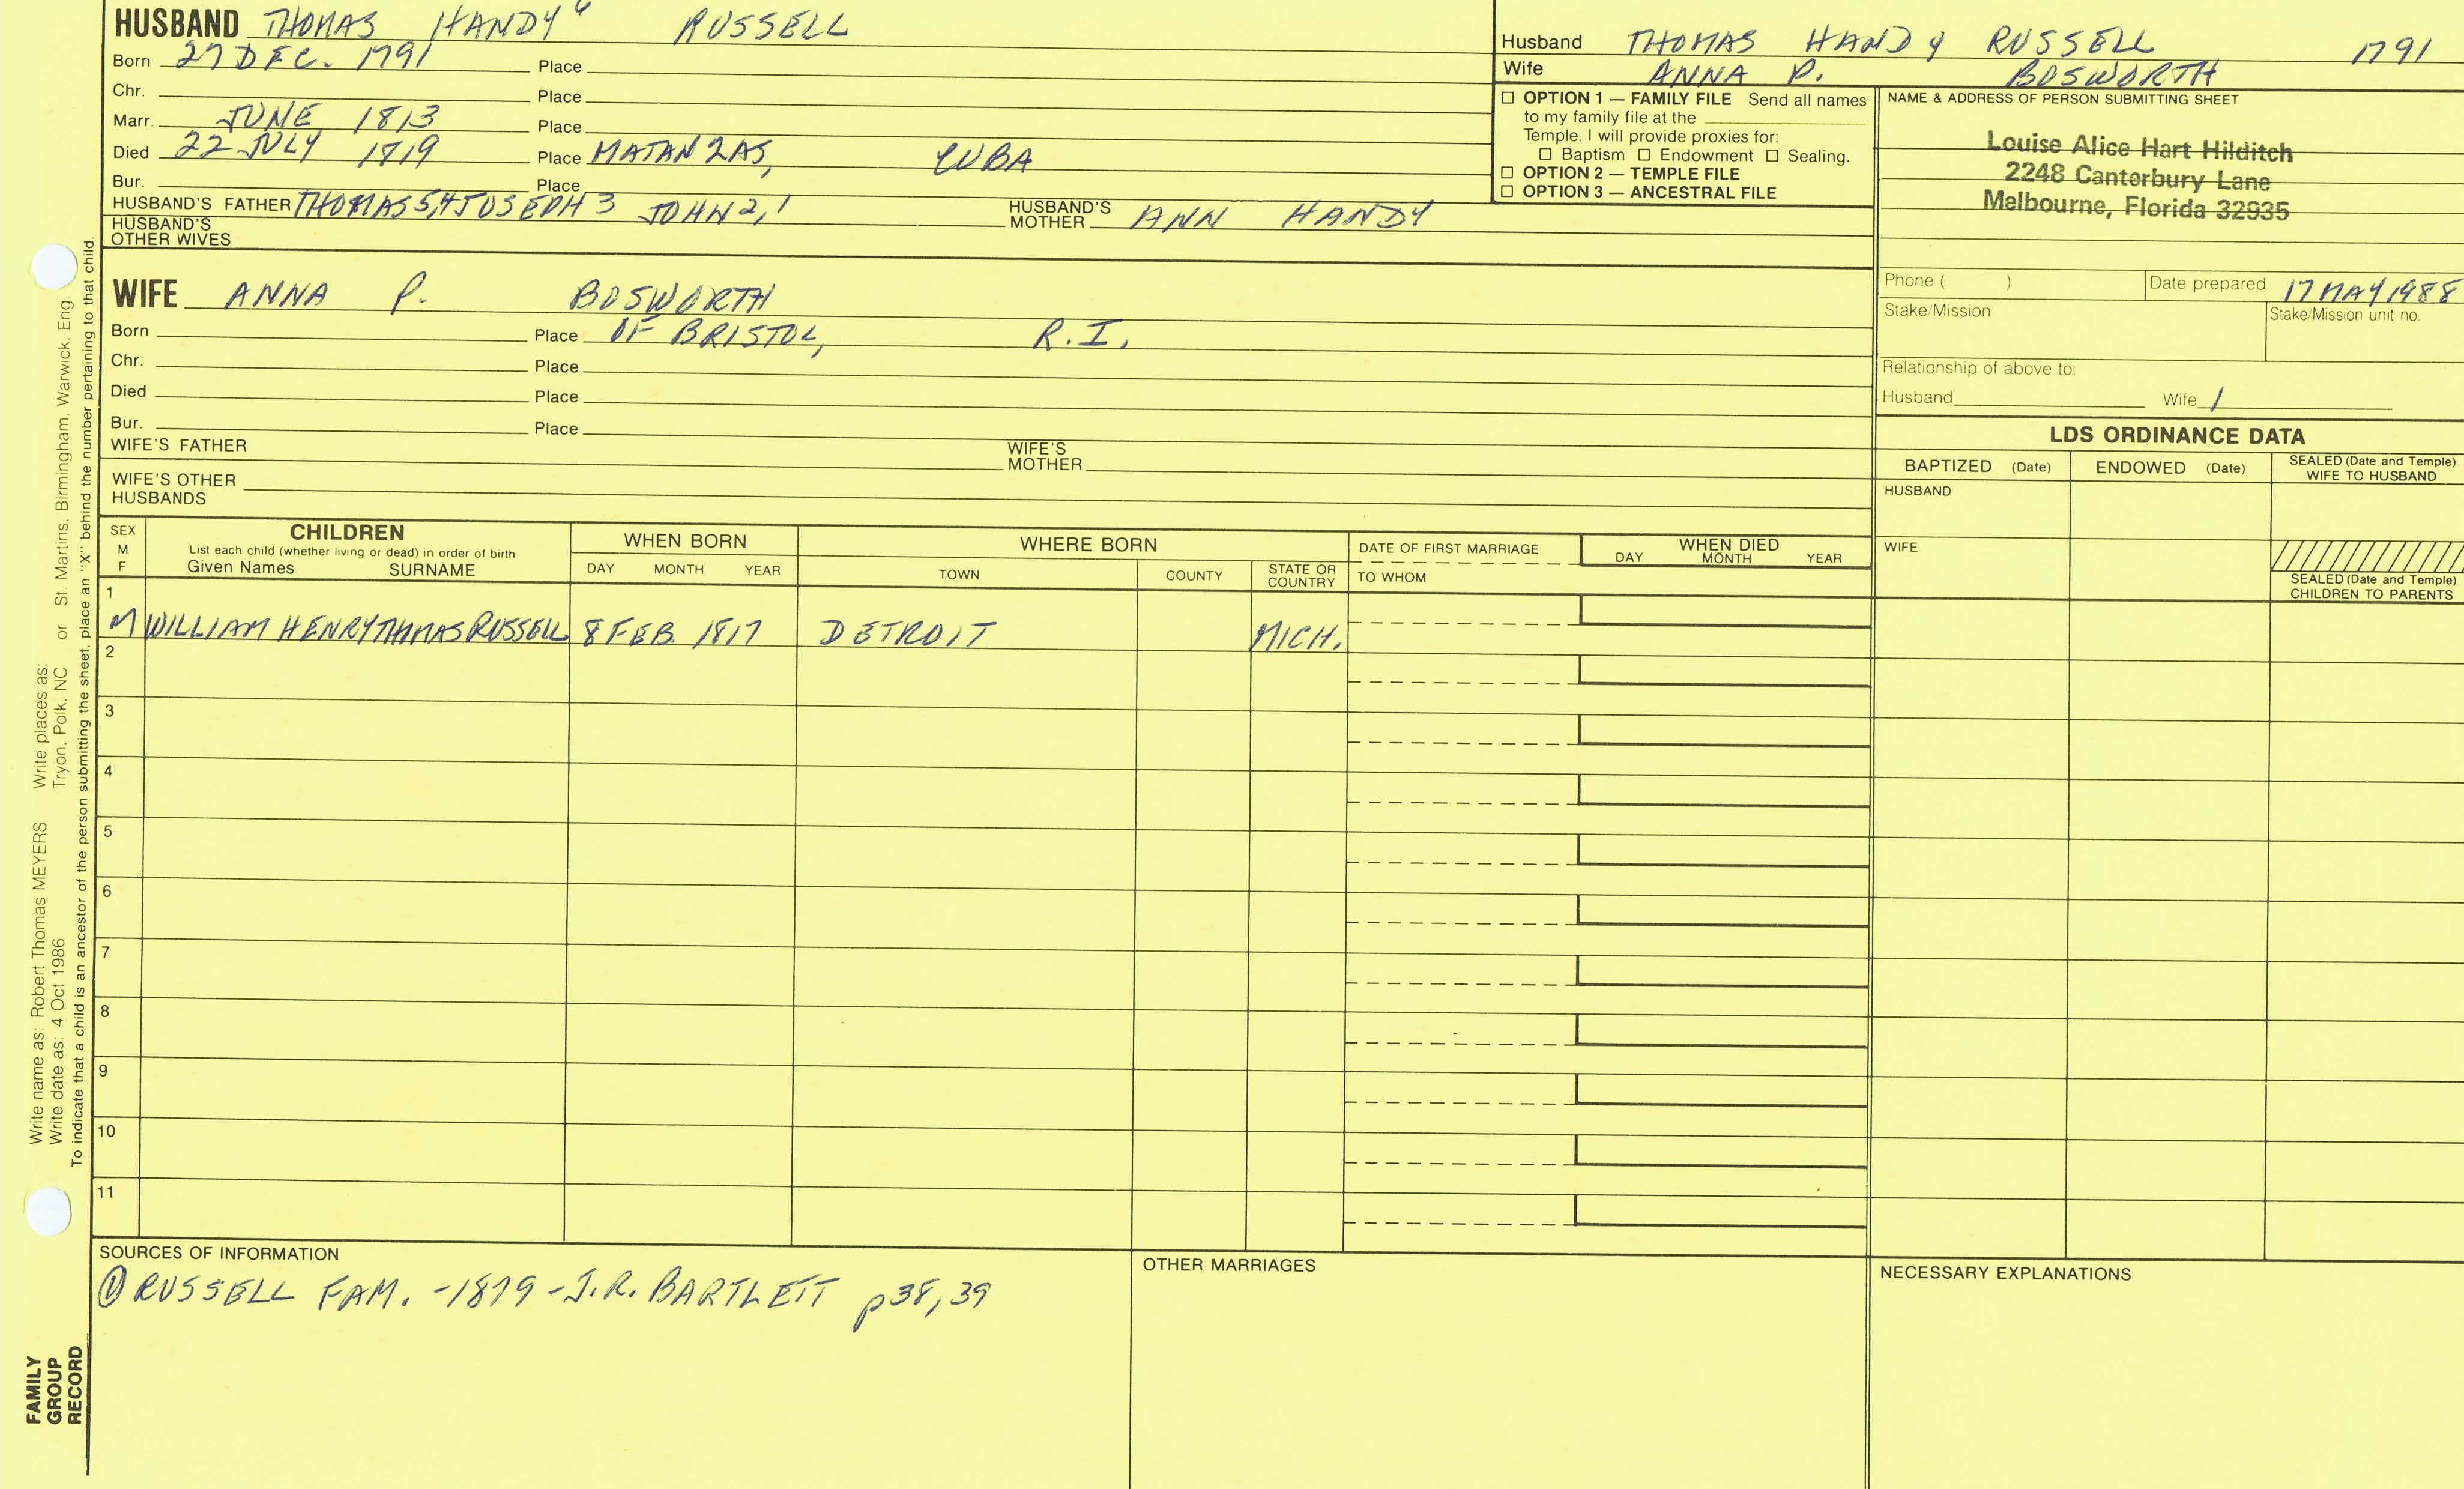 HUSBAND THOMAS HANDY 6 RUSSELL
Born 27 DEC. 1791 Place
Chr. Place
Marr. JUNE 1813 Place
Died 22 JULY 1819 Place MATANZAS, CUBA
Bur. Place
HUSBAND'S FATHER THOMAS 5,4 JOSEPH 3 JOHN 2,1 HUSBAND'S MOTHER ANN HANDY
HUSBAND'S OTHER WIVES
Husband THOMAS HANDY RUSSELL 1791
Wife ANNA P. BOSWORTH
☐ OPTION 1 — FAMILY FILE Send all names
to my family file at the
Temple. I will provide proxies for:
☐ Baptism ☐ Endowment ☐ Sealing.
☐ OPTION 2 — TEMPLE FILE
☐ OPTION 3 — ANCESTRAL FILE
NAME & ADDRESS OF PERSON SUBMITTING SHEET
Louise Alice Hart Hilditch
2248 Canterbury Lane
Melbourne, Florida 32935
WIFE ANNA P. BOSWORTH
Born Place OF BRISTOL, R.I.
Chr. Place
Died Place
Bur. Place
WIFE'S FATHER WIFE'S MOTHER
WIFE'S OTHER HUSBANDS
Phone ( ) Date prepared 17 MAY 1988
Stake/Mission Stake/Mission unit no.
Relationship of above to:
Husband Wife 1
LDS ORDINANCE DATA
BAPTIZED (Date) ENDOWED (Date) SEALED (Date and Temple) WIFE TO HUSBAND
HUSBAND
WIFE
SEALED (Date and Temple)
CHILDREN TO PARENTS
SEX M F
CHILDREN
List each child (whether living or dead) in order of birth
Given Names SURNAME
WHEN BORN
DAY MONTH YEAR
WHERE BORN
TOWN COUNTY STATE OR COUNTRY
DATE OF FIRST MARRIAGE
TO WHOM
WHEN DIED
DAY MONTH YEAR
1
M WILLIAM HENRY THOMAS RUSSELL 8 FEB. 1817 DETROIT MICH.
2
3
4
5
6
7
8
9
10
11
SOURCES OF INFORMATION
① RUSSELL FAM. -1879 -J.R. BARTLETT p38,39
OTHER MARRIAGES
NECESSARY EXPLANATIONS
FAMILY
GROUP
RECORD
Write name as: Robert Thomas MEYERS Write places as:
Write date as: 4 Oct 1986 Tryon, Polk, NC or St. Martins, Birmingham, Warwick, Eng
To indicate that a child is an ancestor of the person submitting the sheet, place an "X" behind the number pertaining to that child.